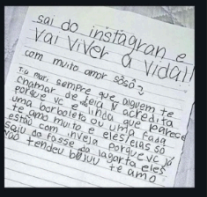 sai do instagran e
vai viver a vida!!
com muito amor
To mari sempre que alguem te
chamar de feia acredita
porque vc e linda que parece
uma borboleta ou uma fada
te amo muito e eles elas só
estão com inveja porque vc ja
saiu da fasse da lagarta eles
não tendeu bejuu te amo